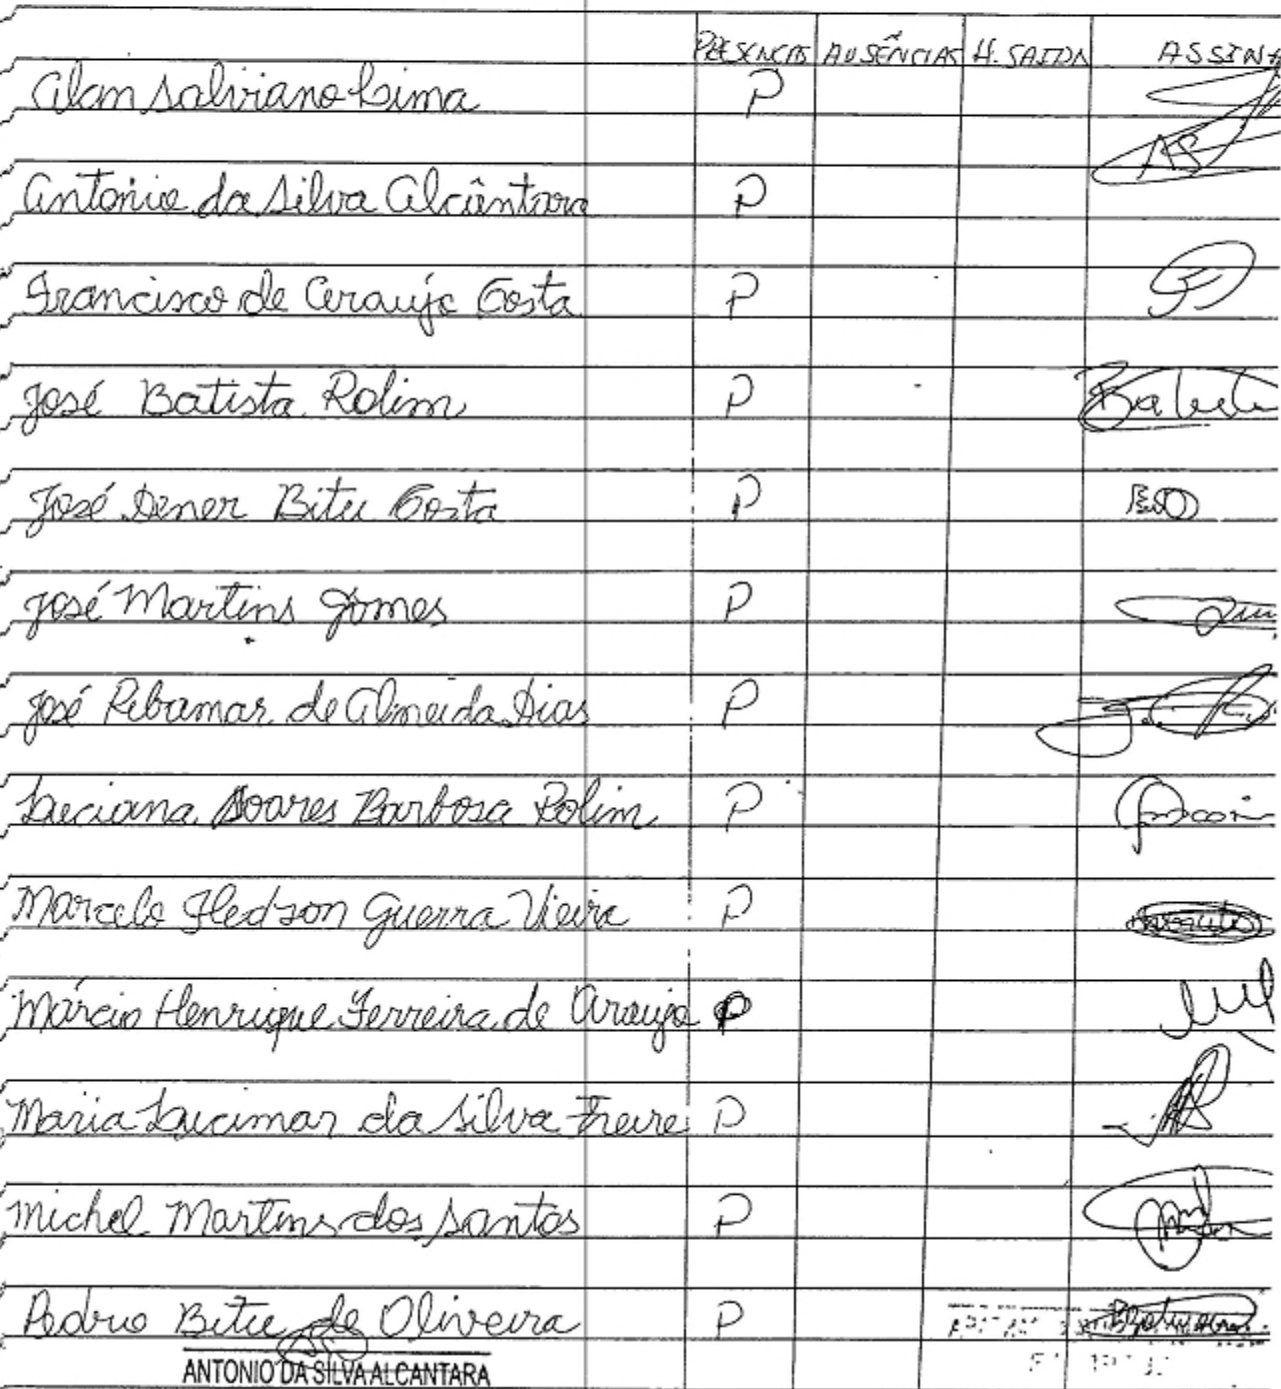 PRESENCAS AUSÊNCIAS H. SAIDA ASSINA
Alan Salviano Lima P
AS
Antonio da Silva Alcântara P
Francisco de Araujo Costa P
José Batista Rolim P Batista
José Dener Bitu Costa P
José Martins Gomes P
José Ribamar de Almeida Dias P
Luciana Soares Barbosa Rolim P
Marcelo Hedson Guerra Vieira P
Márcio Henrique Ferreira de Araujo P
Maria Lucimar da Silva Freire P
Michel Martins dos Santos P
Pedruo Bitu de Oliveira P
ANTONIO DA SILVA ALCANTARA